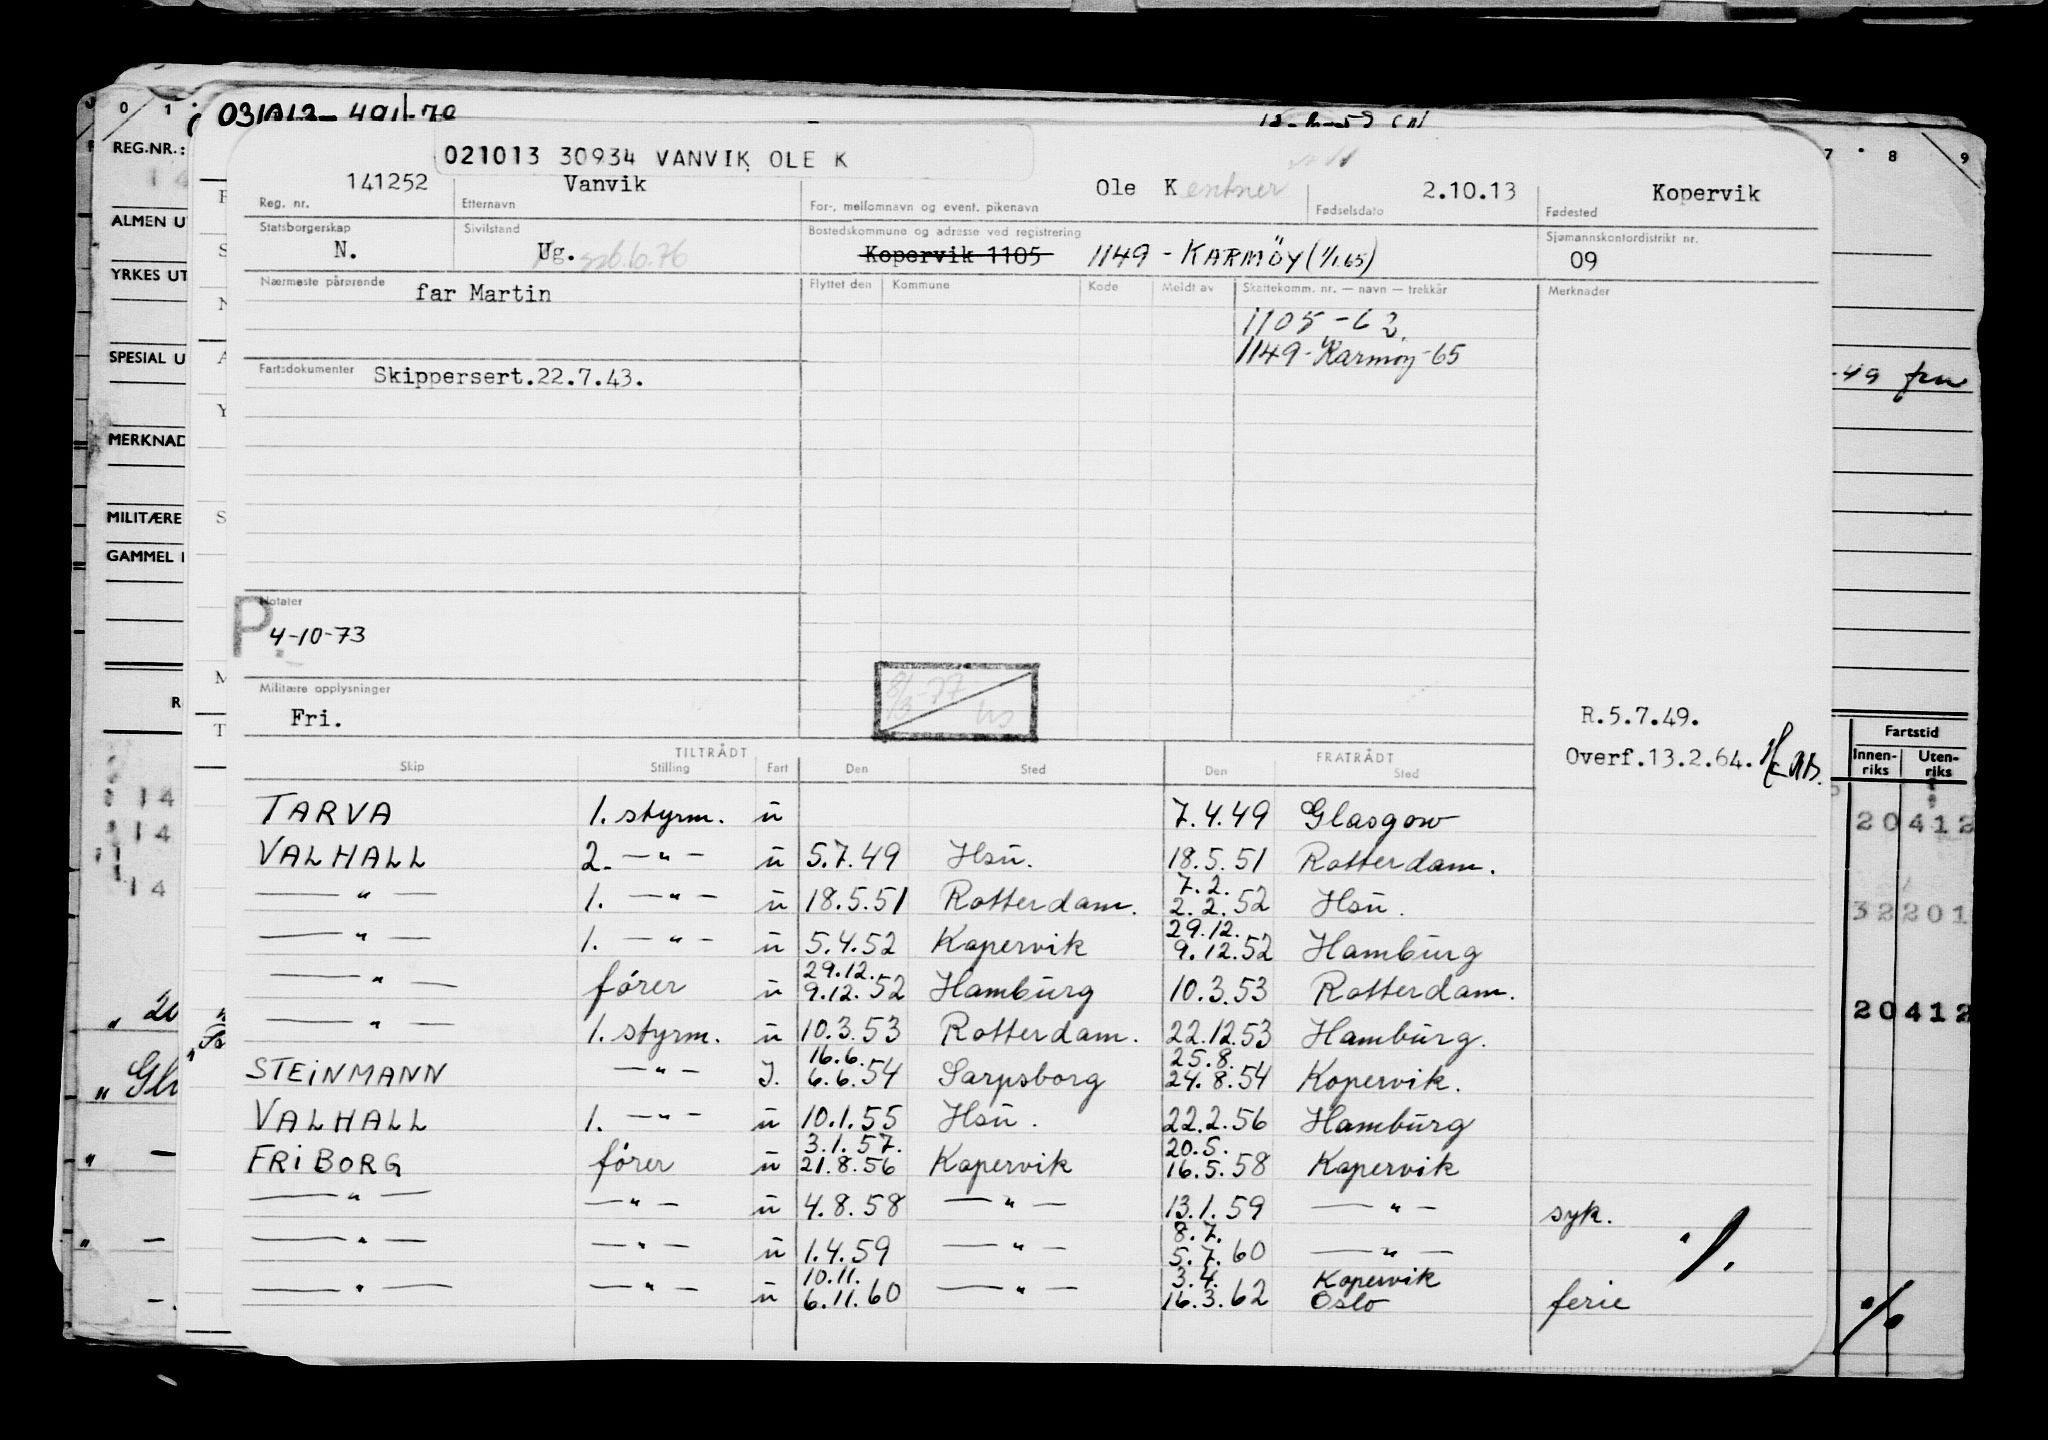 0 1
REG.NR.:
14
ALMEN U
YRKES UT
SPESIAL U
MERKNAD
MILITÆRE
GAMMEL
021013 30934 VANVIK OLE K
141252 Vanvik Ole Kentner 2.10.13 Kopervik
Reg. nr. Etternavn For-, mellomnavn og event. pikenavn Fødselsdato Fødested
Statsborgerskap Sivilstand Bostedskommune og adresse ved registrering Sjømannskontordistrikt nr.
N. Ug. Kopervik 1105 1149 - KARMÖY (1/1.65) 09
Nærmeste pårørende Flyttet den Kommune Kode Meldt av Skattekomm. nr. — navn — trekkår Merknader
far Martin
1105 - 62
1149 - Karmøy - 65
Fartsdokumenter Skippersert.22.7.43.
Notater
P.
4-10-73
Militære opplysninger
Fri.
8/3-77
R.5.7.49.
Overf.13.2.64.
TILTRÅDT FRATRÅDT
Skip Stilling Fart Den Sted Den Sted
TARVA 1. styrm. ū 7.4.49 Glasgow
VALHALL 2. —"— ū 5.7.49 Hsū. 18.5.51 Rotterdam.
7.2.
—"— 1. —"— ū 18.5.51 Rotterdam. 2.2.52 Hsū.
29.12.
—"— 1. —"— ū 5.4.52 Kopervik 9.12.52 Hambūrg
29.12.
—"— fører ū 9.12.52 Hambūrg 10.3.53 Rotterdam.
—"— 1. styrm. ū 10.3.53 Rotterdam. 22.12.53 Hambūrg.
16.6. 25.8.
STEINMANN —"— I. 6.6.54 Sarpsborg 24.8.54 Kopervik.
VALHALL 1. —"— ū 10.1.55 Hsū. 22.2.56 Hambūrg
3.1.57. 20.5.
FRIBORG fører ū 21.8.56 Kopervik 16.5.58 Kopervik
—"— —"— ū 4.8.58 —"— 13.1.59 —"— syk.
8.7.
—"— —"— ū 1.4.59 —"— 5.7.60 —"—
10.11. 3.4. Kopervik
—"— —"— ū 6.11.60 —"— 16.3.62 Oslo ferie
7 8 9
-49
Fartstid
Innen-riks Uten-riks
20412
32201
20412